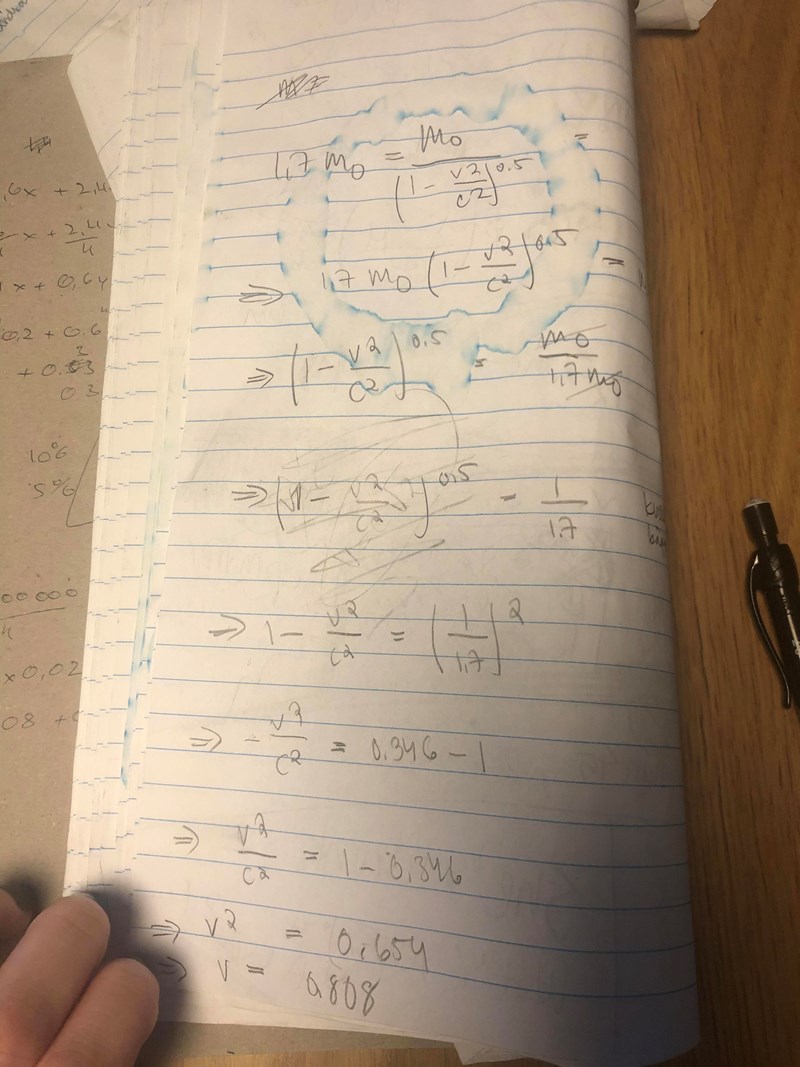 1,7 m₀ = m₀ / (1 - v2/c2)^0.5 =
⇒ 1,7 m₀ (1 - v2/c2)^0.5 =
⇒ (1 - v2/c2)^0.5 = m₀ / 1,7 m₀
⇒ (1 - v2/c2)^0.5 = 1/1.7
⇒ 1 - v2/c2 = (1/1.7)^2
⇒ - v2/c2 = 0.346 - 1
⇒ v2/c2 = 1 - 0.346
⇒ v2 = 0.654
⇒ v = 0.808
,6x + 2,4
x + 2,4/4
x + 0,64
0,2 + 0.6
+ 0.3
03
10%
5%
00000
4
x 0,02
08 +